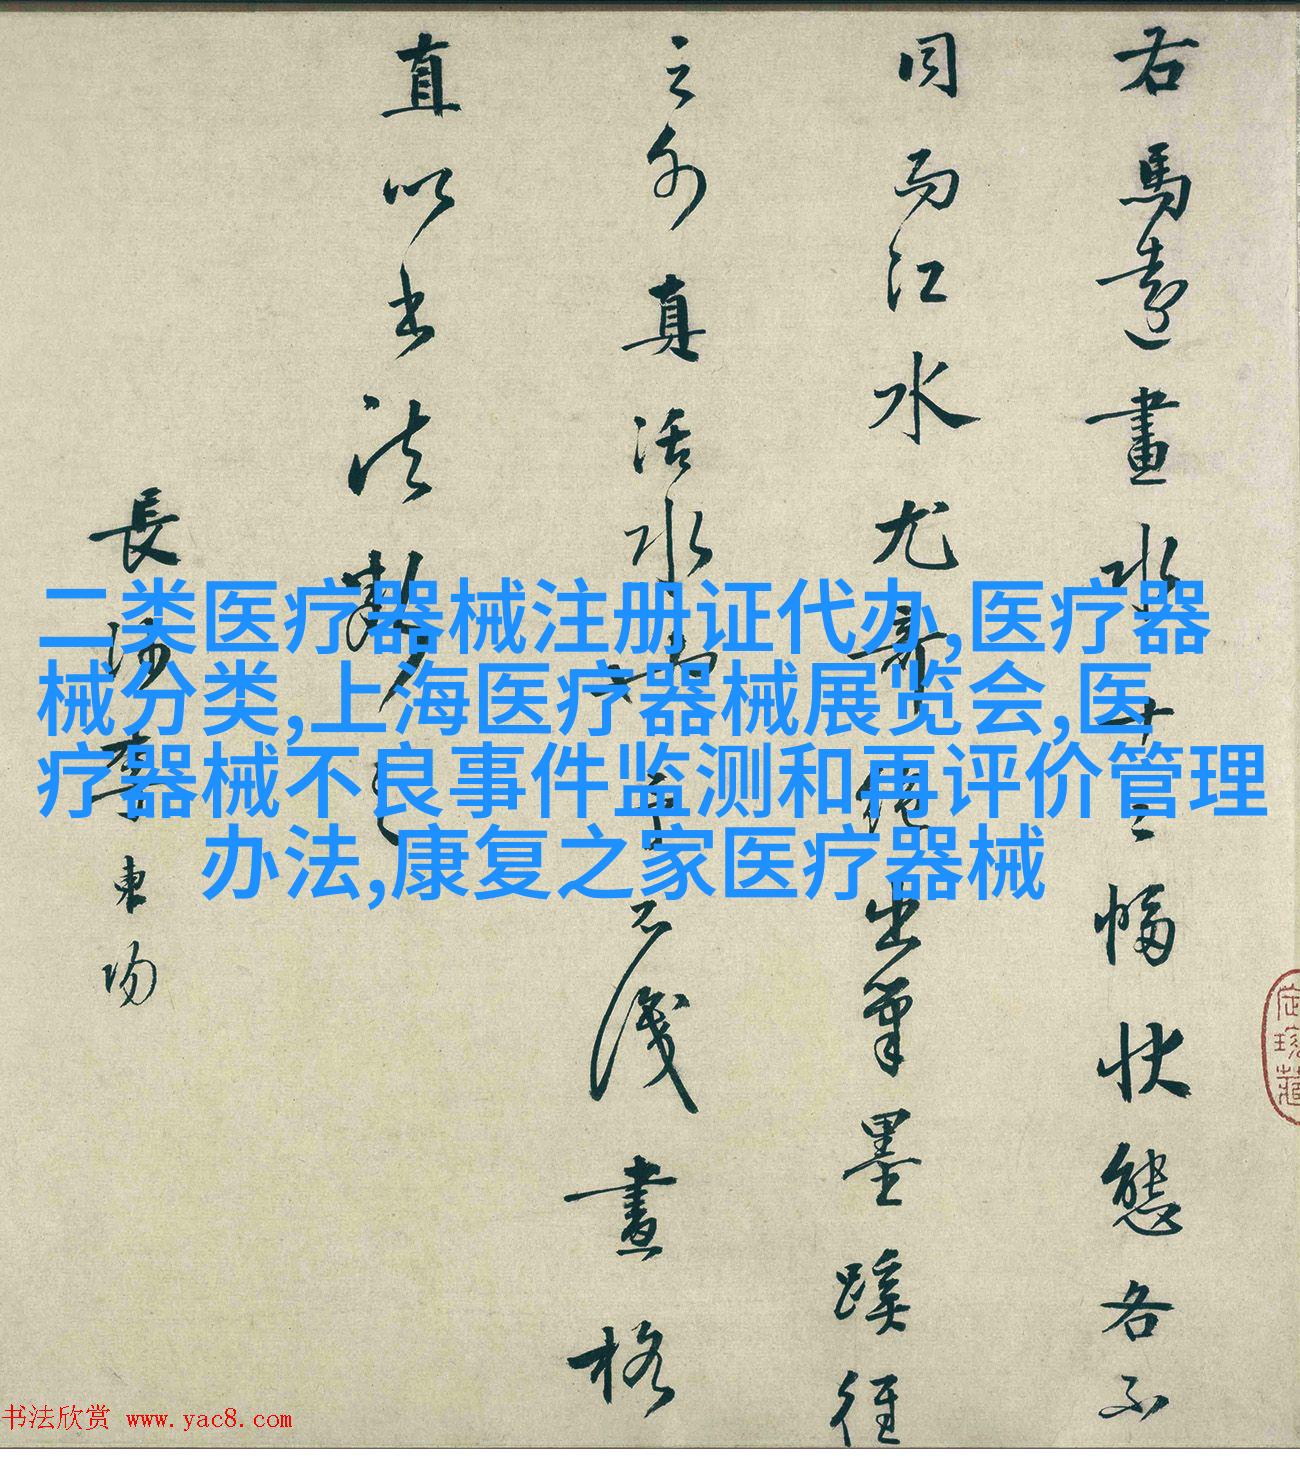 右馬遠畫水十二幅狀態各不
同而江水尤奇絕出筆墨蹊徑
之外真活水也予不識畫格
直以書法觀之
長沙李東陽
二类医疗器械注册证代办,医疗器
械分类,上海医疗器械展览会,医
疗器械不良事件监测和再评价管理
办法,康复之家医疗器械
书法欣赏 www.yac8.com